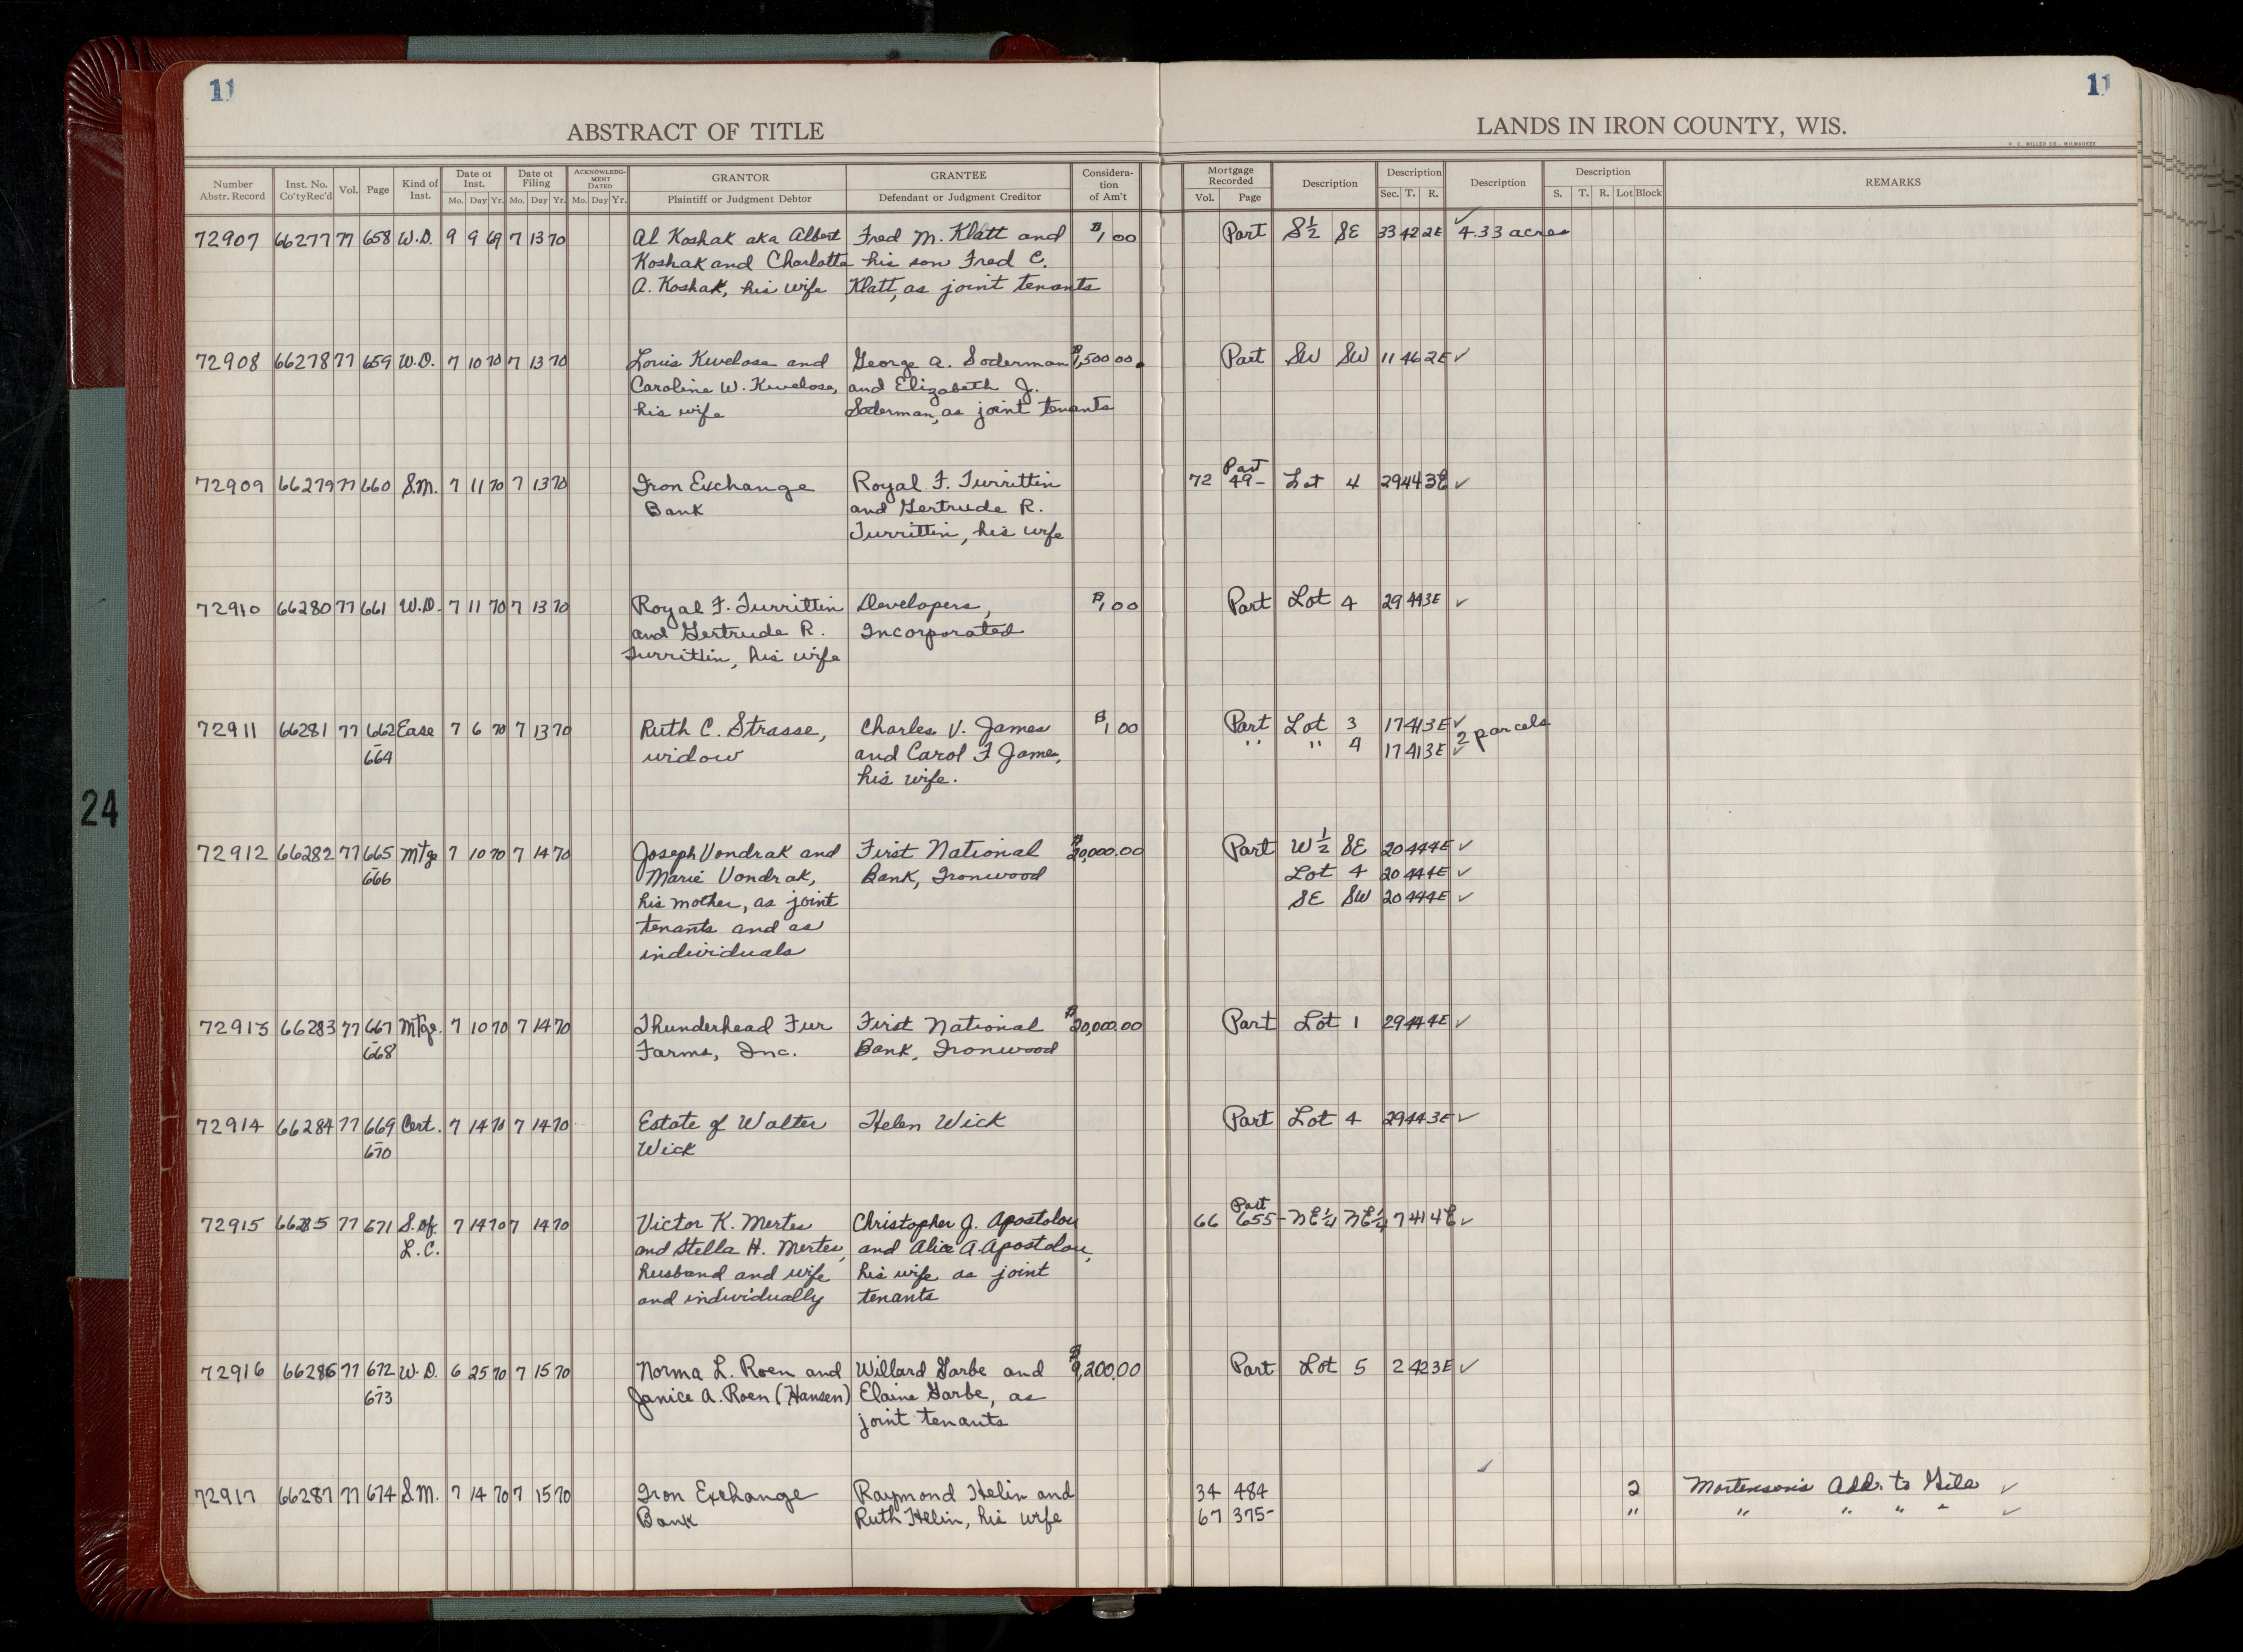 11
11
ABSTRACT OF TITLE
LANDS IN IRON COUNTY, WIS.
H. C. MILLER CO., MILWAUKEE
Number Abstr. Record Inst. No. Co'ty Rec'd Vol. Page Kind of Inst. Date of Inst. Mo. Day Yr. Date of Filing Mo. Day Yr. ACKNOWLEDG-MENT DATED Mo. Day Yr. GRANTOR Plaintiff or Judgment Debtor GRANTEE Defendant or Judgment Creditor Considera-tion of Am't Mortgage Recorded Vol. Page Description Description Sec. T. R. Description Description S. T. R. Lot Block REMARKS
72907 66277 77 658 W.D. 9 9 69 7 13 70 Al Koshak aka Albert Fred M. Klatt and $1 00 Part S½ SE 33 42 2E ✓ 4.33 acres
Koshak and Charlotte his son Fred C.
A. Koshak, his wife Klatt, as joint tenants
72908 66278 77 659 W.D. 7 10 70 7 13 70 Louis Kwelosa and George A. Soderman $1,500 00 Part SW SW 11 46 2E ✓
Caroline W. Kwelosa, and Elizabeth J.
his wife Soderman, as joint tenants
72909 66279 77 660 S.M. 7 11 70 7 13 70 Iron Exchange Royal F. Turrittin 72 49- Part Lot 4 29 44 3E ✓
Bank and Gertrude R.
Turrittin, his wife
72910 66280 77 661 W.D. 7 11 70 7 13 70 Royal F. Turrittin Developers, $1 00 Part Lot 4 29 44 3E ✓
and Gertrude R. Incorporated
Turrittin, his wife
72911 66281 77 662 Ease 7 6 70 7 13 70 Ruth C. Strasse, Charles V. James $1 00 Part Lot 3 17 41 3E ✓ 2 parcels
- 664 widow and Carol F James, " " 4 17 41 3E ✓
his wife.
72912 66282 77 665 Mtge 7 10 70 7 14 70 Joseph Vondrak and First National $20,000.00 Part W½ SE 20 44 4E ✓
- 666 Marie Vondrak, Bank, Ironwood Lot 4 20 44 4E ✓
his mother, as joint SE SW 20 44 4E ✓
tenants and as
individuals
72913 66283 77 667 Mtge. 7 10 70 7 14 70 Thunderhead Fur First National $20,000.00 Part Lot 1 29 44 4E ✓
- 668 Farms, Inc. Bank, Ironwood
72914 66284 77 669 Cert. 7 14 70 7 14 70 Estate of Walter Helen Wick Part Lot 4 29 44 3E ✓
- 670 Wick
72915 66285 77 671 S. of 7 14 70 7 14 70 Victor K. Mertes Christopher J. Apostolou 66 655- Part NE¼ NE¼ 7 41 4E ✓
L.C. and Stella H. Mertes, and Alice A. Apostolou,
husband and wife his wife as joint
and individually tenants
72916 66286 77 672 W.D. 6 25 70 7 15 70 Norma L. Roen and Willard Garbe and $9,200.00 Part Lot 5 2 42 3E ✓
- 673 Janice A. Roen (Hansen) Elaine Garbe, as
joint tenants
72917 66287 77 674 S.M. 7 14 70 7 15 70 Iron Exchange Raymond Helin and 34 484 ✓ 2 Mortenson's Add. to Gile ✓
Bank Ruth Helin, his wife 67 375- " " " " " ✓
24